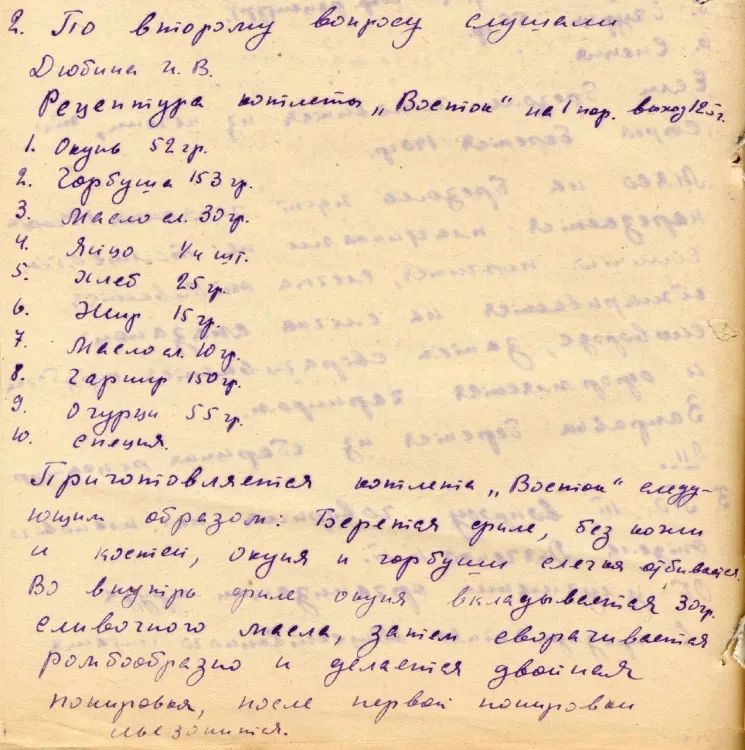 2. По второму вопросу слушали
Дюбина И. В.
Рецептура котлеты „Восток" на 1 пор. выход 125 г.
1. Окунь 52 гр.
2. Горбуша 153 гр.
3. Масло сл. 30 гр.
4. Яйцо 1/4 шт.
5. Хлеб 25 гр.
6. Жир 15 гр.
7. Масло сл. 10 гр.
8. Гарнир 150 гр.
9. Огурци 55 гр.
10. специя.
Приготовляется котлета „Восток" следу-
ющим образом: Берется филе, без кожи
и костей, окуня и горбуши слегка отбивается.
Во внутрь филе окуня вкладывается 30 гр.
сливочного масла, затем сворачивается
ромбообразно и делается двойная
понировка, после первой понировки
льезонится.